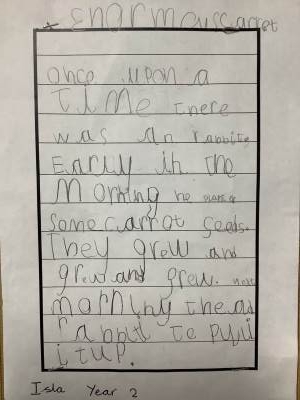 enormous carret
once upon a
time there
was an rabbite
Early in the
morning he
some carrot seeds.
They grew and
grew and grew. next
morning the
rabbit to pull
it up.
Isla Year 2